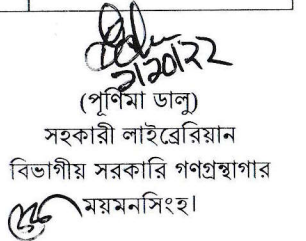 ২/১০/২২
(পূর্ণিমা ডালু)
সহকারী লাইব্রেরিয়ান
বিভাগীয় সরকারি গণগ্রন্থাগার
ময়মনসিংহ।